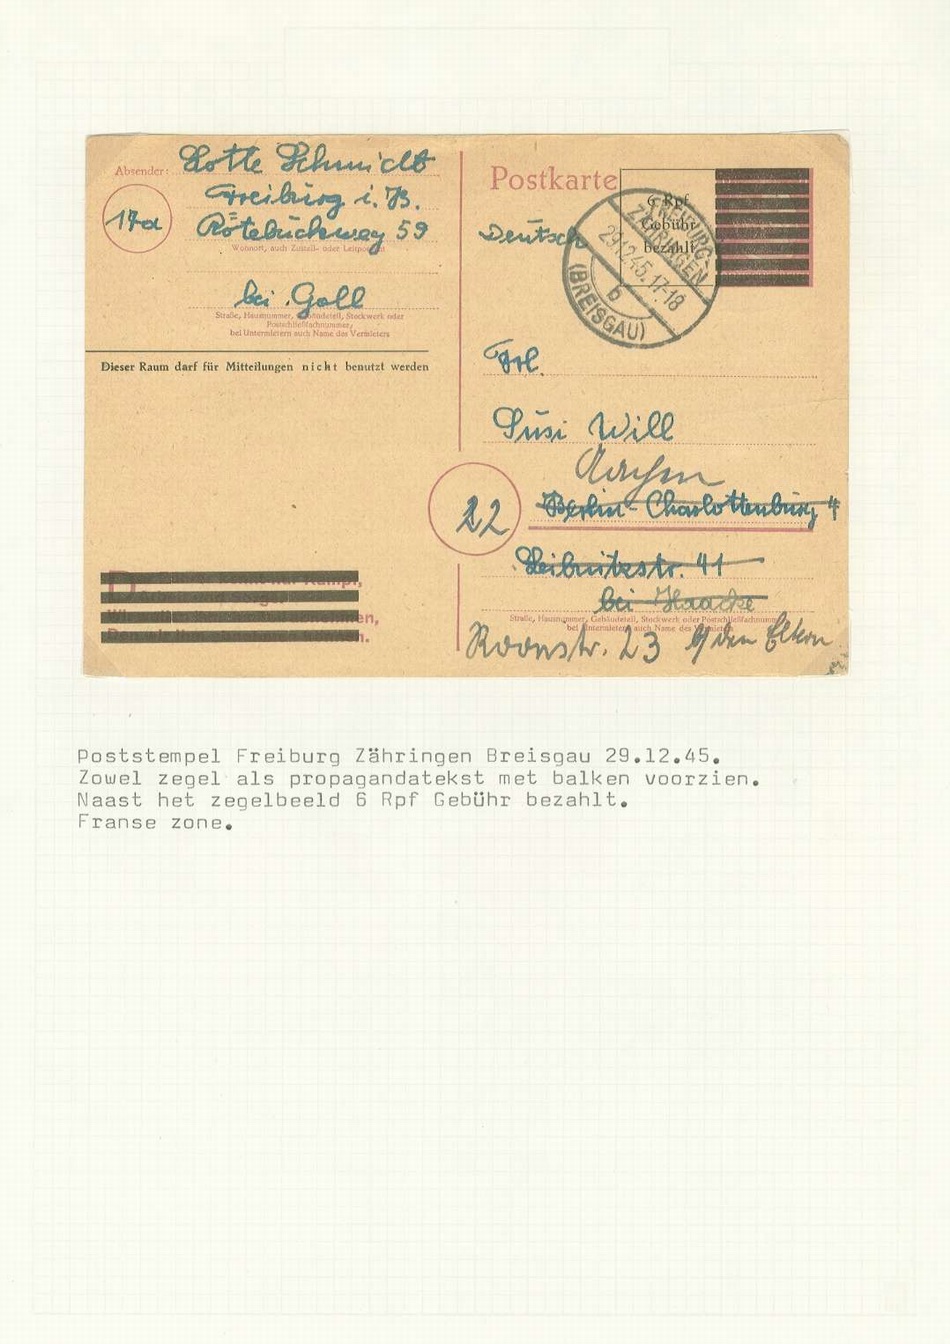 Absender: Lotte Schmidt
Freiburg i. B.
17a
Rötebuckweg 59
Wohnort, auch Zustell- oder Leitpostamt
bei Goll
Straße, Hausnummer, Gebäudeteil, Stockwerk oder
Postschließfachnummer,
bei Untermietern auch Name des Vermieters
Dieser Raum darf für Mitteilungen nicht benutzt werden
Postkarte
6 Rpf
Gebühr
bezahlt
Deutsch
FREIBURG-
ZÄHRINGEN
29.12.45.17-18
b
(BREISGAU)
Frl.
Susi Will
Aachen
22
Berlin-Charlottenburg 4
Leibnitzstr. 41
bei Haacke
Straße, Hausnummer, Gebäudeteil, Stockwerk oder Postschließfachnummer,
bei Untermietern auch Name des Vermieters
Roonstr. 23 den Eltern
Poststempel Freiburg Zähringen Breisgau 29.12.45.
Zowel zegel als propagandatekst met balken voorzien.
Naast het zegelbeeld 6 Rpf Gebühr bezahlt.
Franse zone.